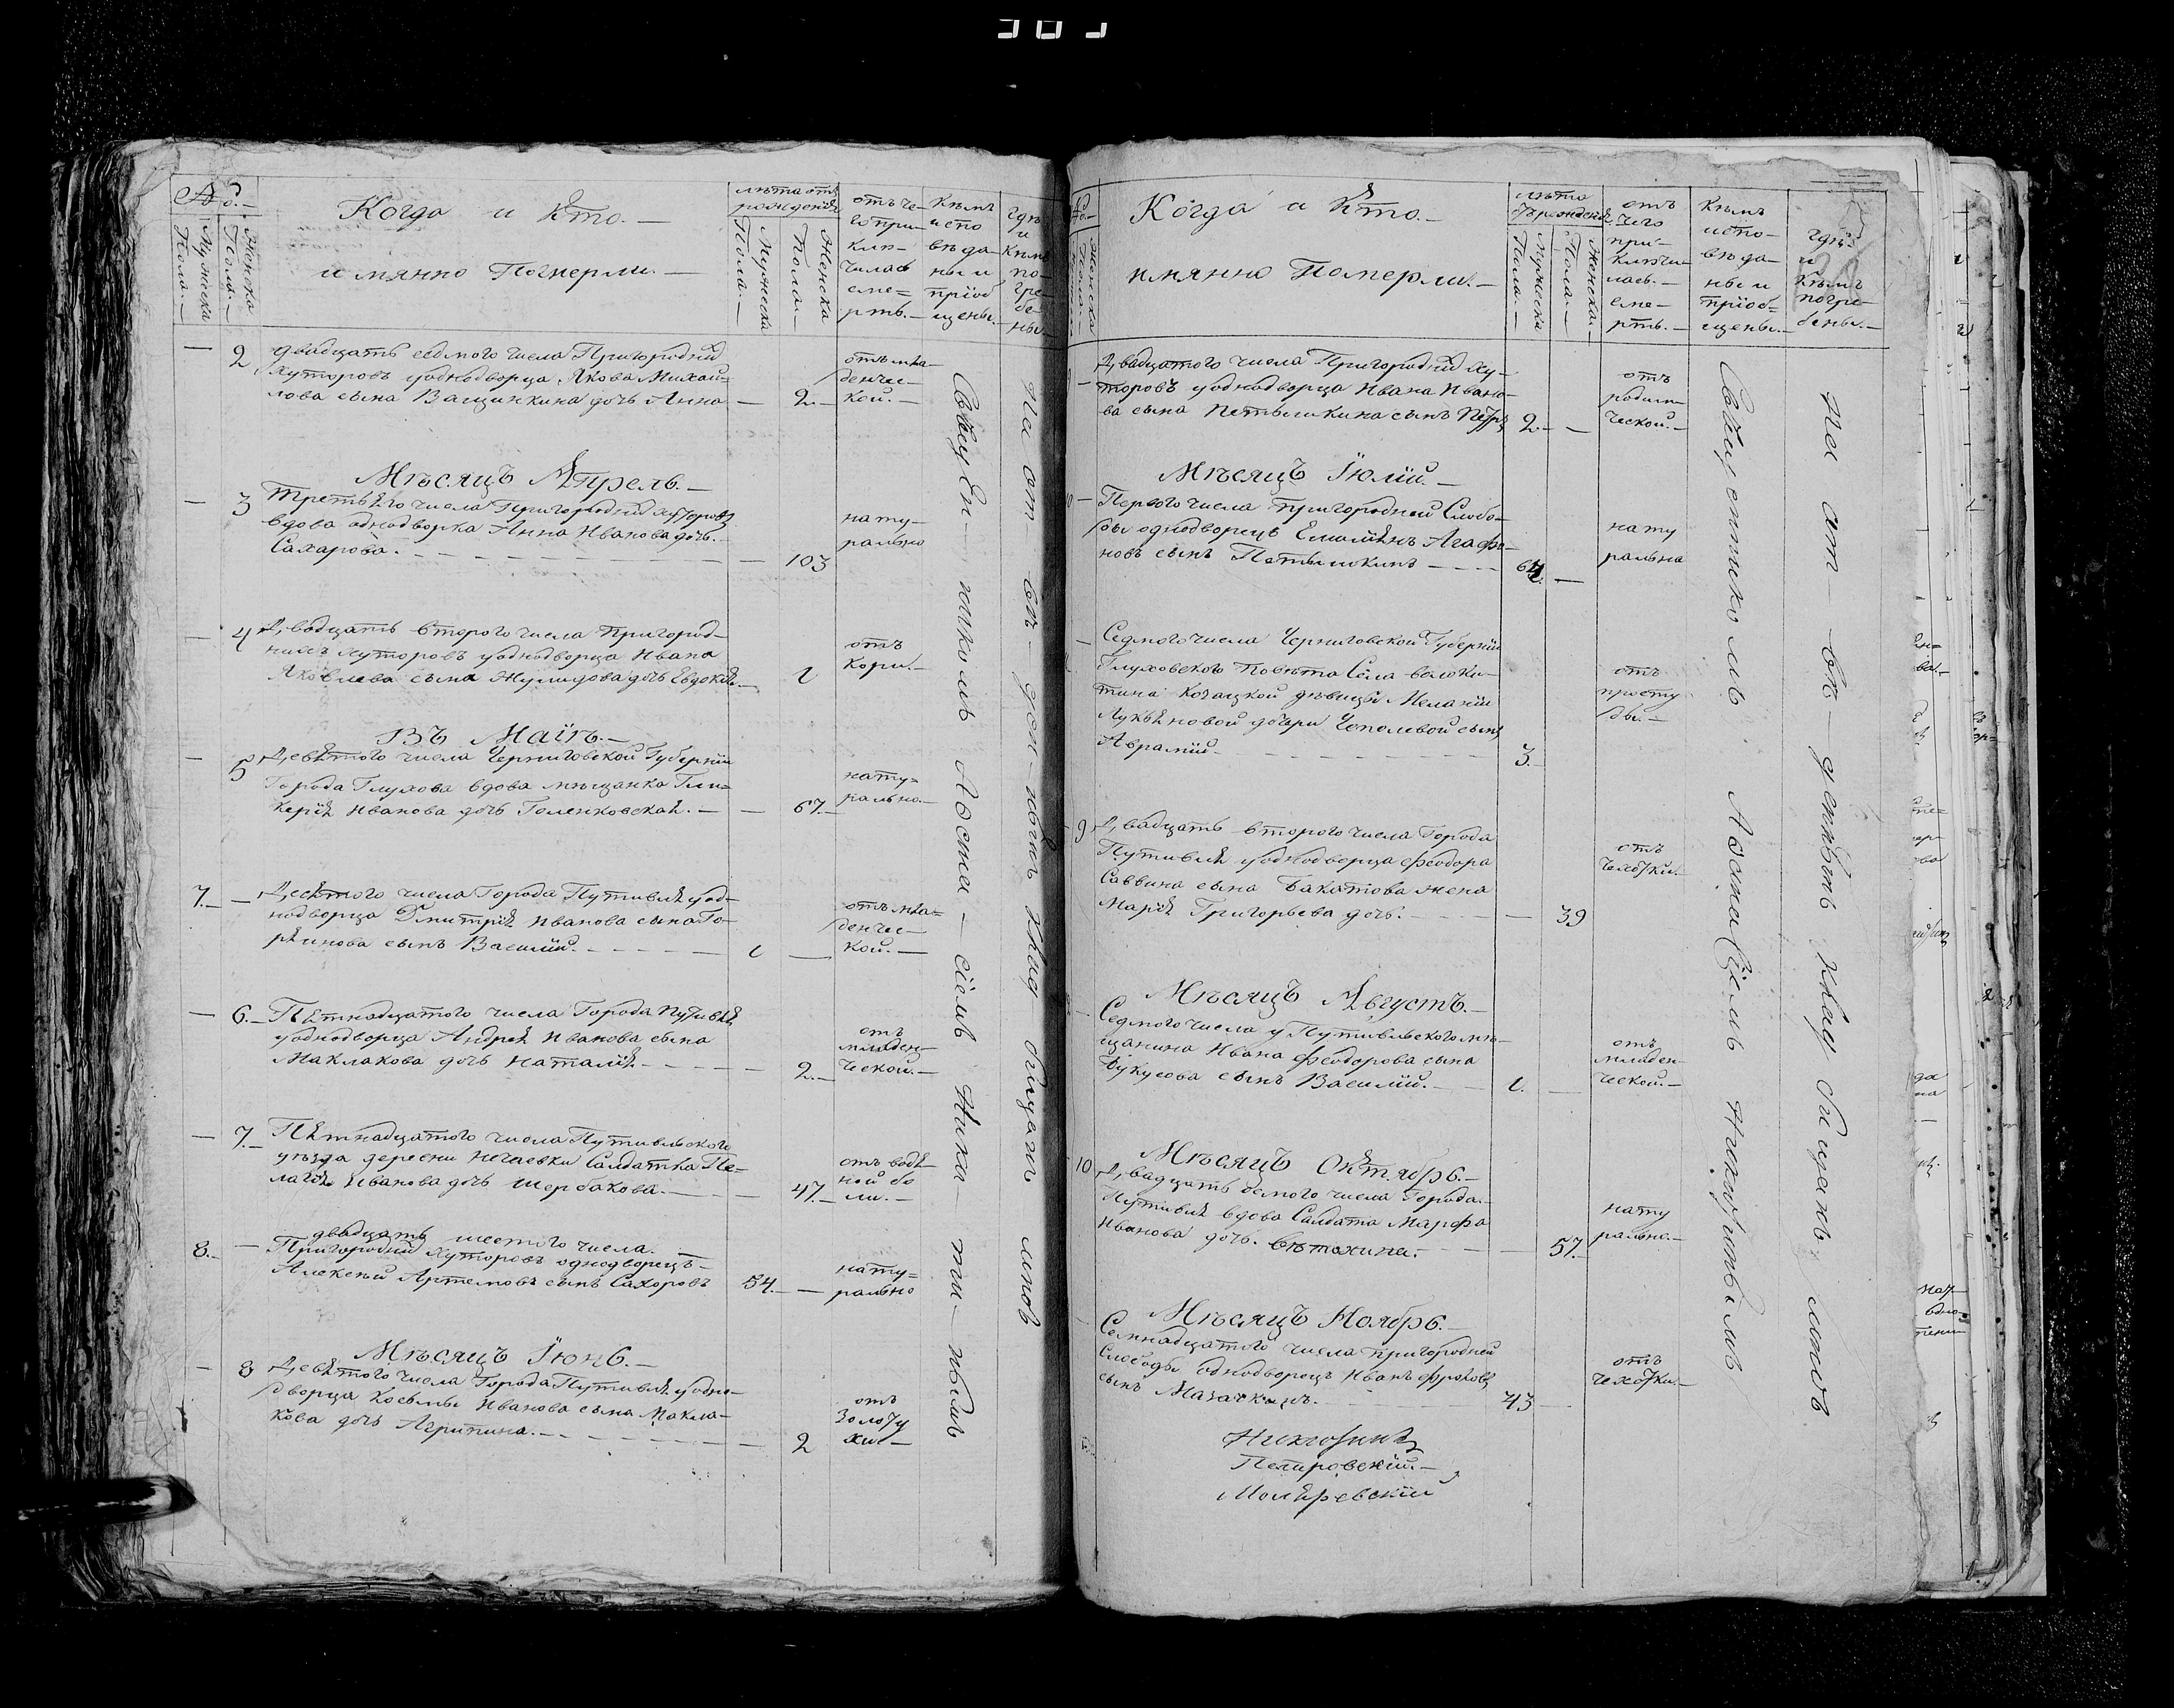 №
Мужеска Пола.—
Женска Пола.—
Когда и Кто.—
имянно Померли.—
лѣта отъ рожденія
Мужеска Пола.—
Женска Пола.—
отъ че-
го при-
клю-
чилась
сме=
рть.—
Кѣмъ
испо
вѣда-
ны и
пріоб
щены.—
гдѣ
и
Кѣмъ
по-
гре-
бе-
ны
— 2 двадцать седмого числа Пригородний
хуторовъ уоднодворца Якова Михай=
лова сына Ващинкина дочь Анна — 2.—
отъ мла
денчес-
кой.—
Мѣсяцъ Апрель.—
— 3 третьяго числа Пригородний хуторовъ
вдова однодворка Анна Иванова дочь
Сахарова. — 103
нату-
рально
— 4 Двадцать второго числа Пригород-
нихъ хуторовъ уоднодворца Ивана
Яковлева сына дочь Евдокія.— 1
отъ
Кори.—
Въ Маіѣ.—
— 5 Девятого числа Черниговской Губерніи
Города Глухова вдова мѣщанка Гли=
керія Иванова дочь Голенковская.— — 67.—
нату=
рально.—
7.— — Десятого числа Города Путивля уод-
нодворца Дмитрія Иванова сына Го-
ряинова сынъ Василій. 1 —
отъ мла=
денчес-
кой.—
— 6.— Пятнадцатого числа Города Путивля
уоднодворца Андрея Иванова сына
Маклакова дочь Наталія — 2.—
отъ
младен-
ческой.—
— 7.— Пятнадцатого числа Путивльского
уѣзда деревни Нечаевки Салдатка Пе-
лагія Иванова дочь Щербакова.— — 47.—
отъ водя
ной бо
ли.—
8.— — двадцать шестого числа.
Пригородний хуторовъ однодворецъ—
Алексѣй Артемовъ сынъ Сахоровъ 54.— —
нату=
рально
Мѣсяцъ Іюнь.—
— 8 Девятого числа Города Путивля уодно-
дворца Косьмы Иванова сына Макла-
кова дочь Агрипина. — 2
отъ
золоту
хи—
Священникомъ Авона-сіемъ Ники-ти-нымъ
На от-вѣ-ден-номъ клад бищахъ мпов
№
Женска Пола
Когда и Кто.—
имянно Померли.—
лѣта
отъ рожденія
Мужеска Пола.—
Женска Пола.—
отъ
чего
при-
ключи-
лась.—
сме-
рть.—
Кѣмъ
испо-
вѣда-
ны и
пріоб=
щены.—
гдѣ
и
Кѣмъ
погре-
бены.—
Двадцатого числа Пригородний ху-
торовъ уоднодворца Ивана Ивано-
ва сына Петышкина сынъ Петръ 2.— —
отъ
родим-
ческой.—
Мѣсяцъ Іюлій.—
Первого числа пригородней Слобо-
ды однодворецъ Емельянъ Агафо-
новъ сынъ Петышкинъ —
нату
рально
Седмого числа Черниговской Губерніи
Глуховского Повѣта Села Волоки-
тина Козацкой дѣвицы Меланіи
Лукьяновой дочери сынъ
Аврамій 3.—
отъ
просту
ды.—
9 Двадцать второго числа Города
Путивля уоднодворца Феодора
Саввина сына Бакатова жена
Марія Григорьева дочь. — 39
отъ
чехотки.—
Мѣсяцъ Августъ.—
Седмого числа у Путивльского мѣ-
щанина Ивана Феодорова сына
сынъ Василій. 1. —
отъ
младен-
ческой.—
Мѣсяцъ Октябрь.—
10 Двадцать осмого числа Города
Путивля вдова Салдата Марфа
Иванова дочь. — 57.—
нату
рально.—
Мѣсяцъ Ноябрь.—
Семнадцатого числа пригородней
Слободы однодворецъ Иванъ Фроловъ
сынъ Мазачкинъ. 43 —
отъ
чехотки.—
Петровскій.—
Священникомъ Авонасіемъ Никитинымъ
На от-вѣ денномъ клад бищахъ